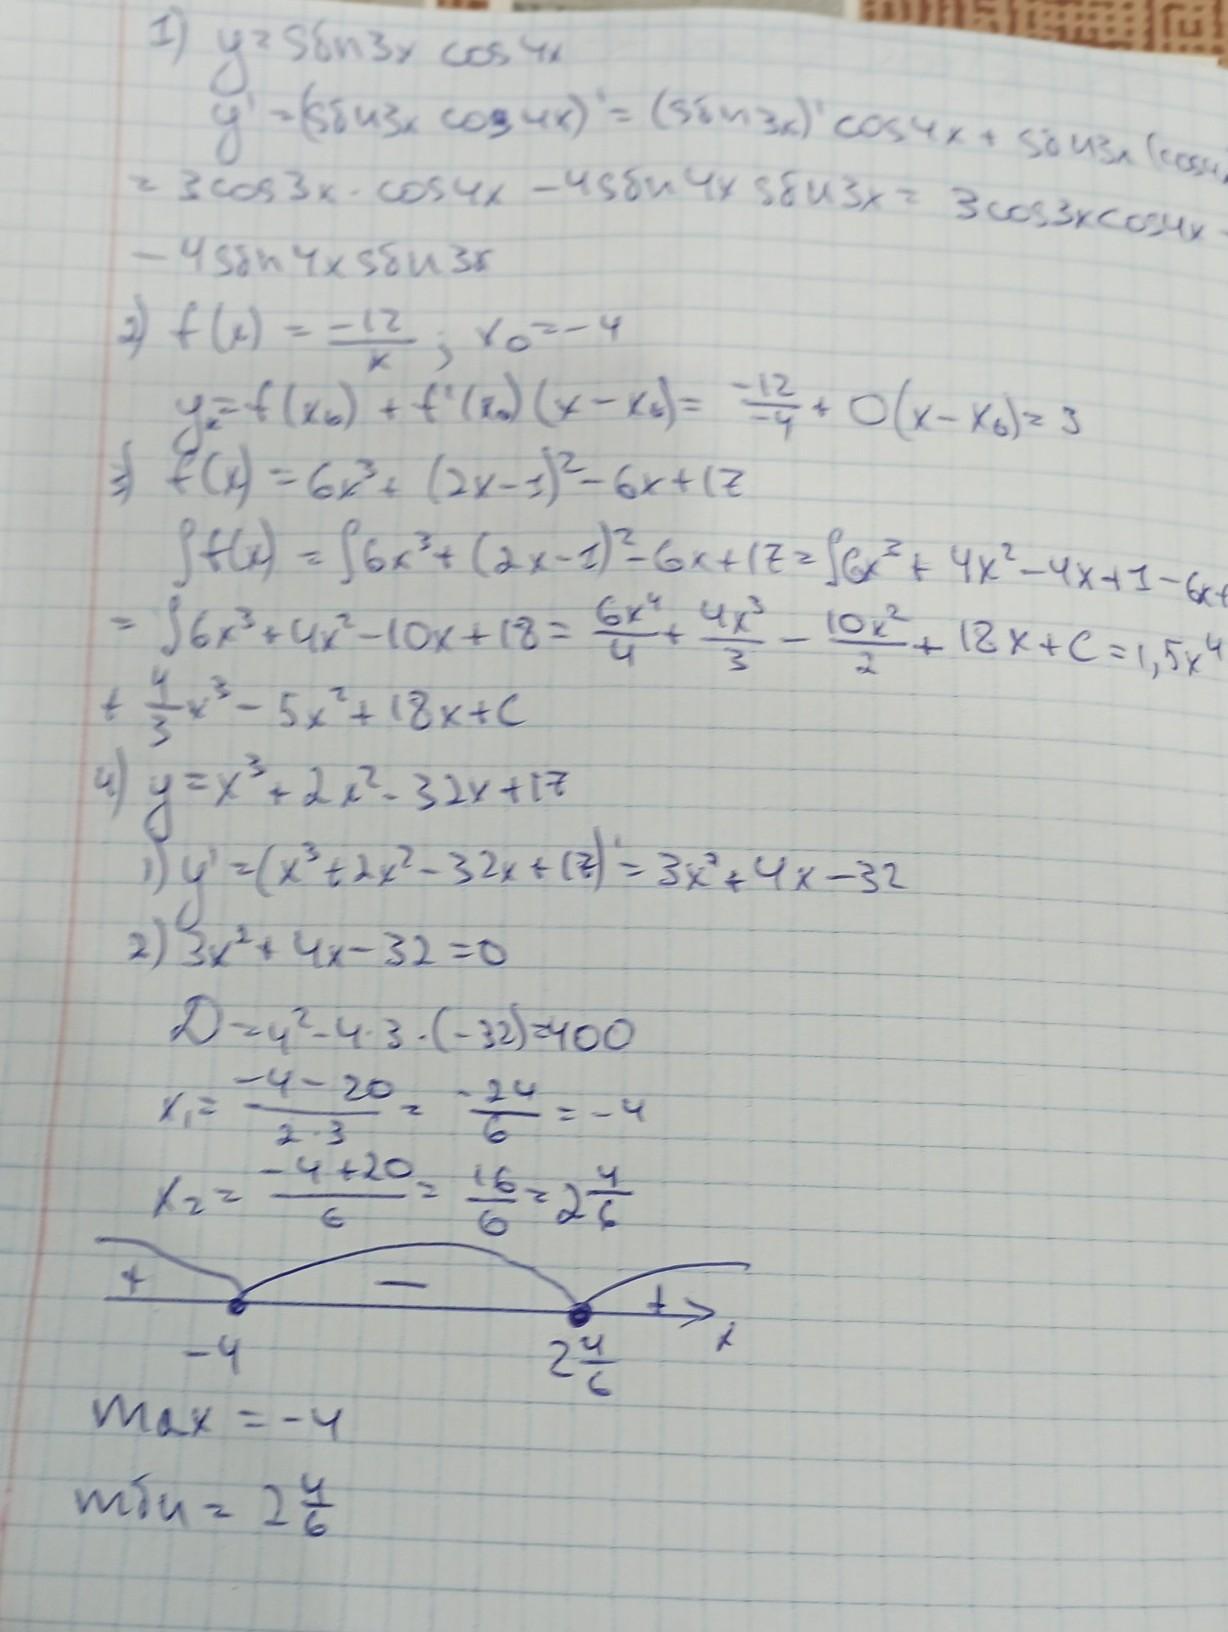 1) y = sin3x cos4x
y' = (sin3x cos4x)' = (sin3x)' cos4x + sin3x (cos4x
= 3cos3x · cos4x - 4sin4x sin3x = 3cos3xcos4x -
- 4sin4xsin3x
2) f(x) = -12/x ; x₀ = -4
y = f(x₀) + f'(x₀)(x - x₀) = -12/-4 + 0(x - x₀) = 3
3) f(x) = 6x³ + (2x-1)² - 6x + 17
∫f(x) = ∫6x³ + (2x-1)² - 6x + 17 = ∫6x³ + 4x² - 4x + 1 - 6x +
= ∫6x³ + 4x² - 10x + 18 = 6x⁴/4 + 4x³/3 - 10x²/2 + 18x + C = 1,5x⁴
+ 4/3 x³ - 5x² + 18x + C
4) y = x³ + 2x² - 32x + 17
1) y' = (x³ + 2x² - 32x + 17)' = 3x² + 4x - 32
2) 3x² + 4x - 32 = 0
D = 4² - 4·3·(-32) = 400
x₁ = -4 - 20/2·3 = -24/6 = -4
x₂ = -4 + 20/6 = 16/6 = 2 4/6
+ — +
-4 2 4/6 x
max = -4
min = 2 4/6